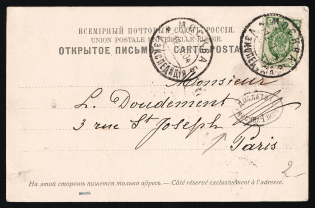 ВСЕМІРНЫЙ ПОЧТОВЫЙ СОЮЗЪ. РОССІЯ.
UNION POSTALE UNIVERSELLE. RUSSIE.
ОТКРЫТОЕ ПИСЬМО — CARTE POSTALE
МОСКВА
Monsieur
L. Doudement
3 rue St Joseph
Paris
2
На этой сторонѣ пишется только адресъ. — Côté réservé exclusivement à l'adresse.